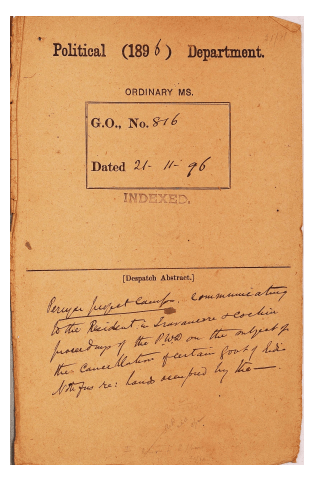 Political (1896) Department.
ORDINARY MS.
G.O., No. 816
Dated 21-11-96
INDEXED.
[Despatch Abstract.]
Periyar project Camps. Communicating
to the Resident in Travancore & Cochin
proceedings of the PWD on the subject of
the cancellation of certain Govt of India
Notifns re: lands occupied by the —